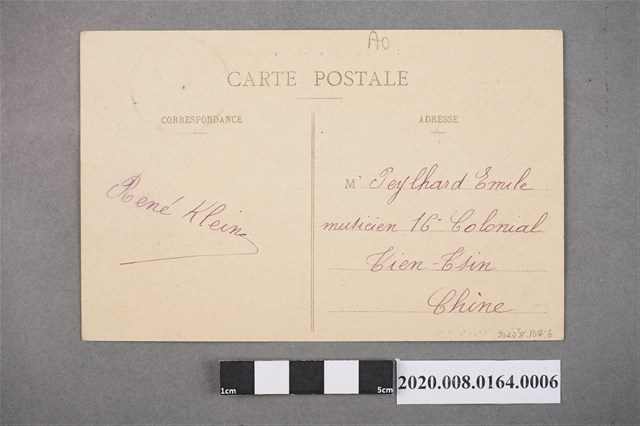 AO
CARTE POSTALE
CORRESPONDANCE
ADRESSE
René Klein
Mr Peylhard Emile
musicien 16e Colonial
Tien-Tsin
Chine
1cm
5cm
2020.008.0164.0006